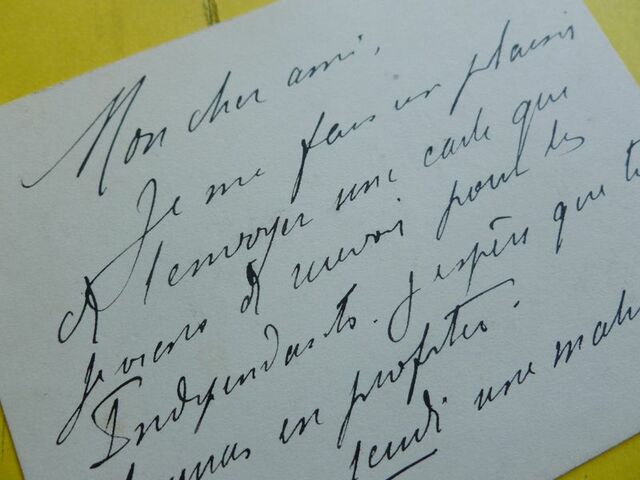 Mon cher ami,
Je me fais un plaisir
de t'envoyer une carte que
je viens de recevoir pour les
Indépendants. J'espère que tu
pourras en profiter.
jeudi une mati